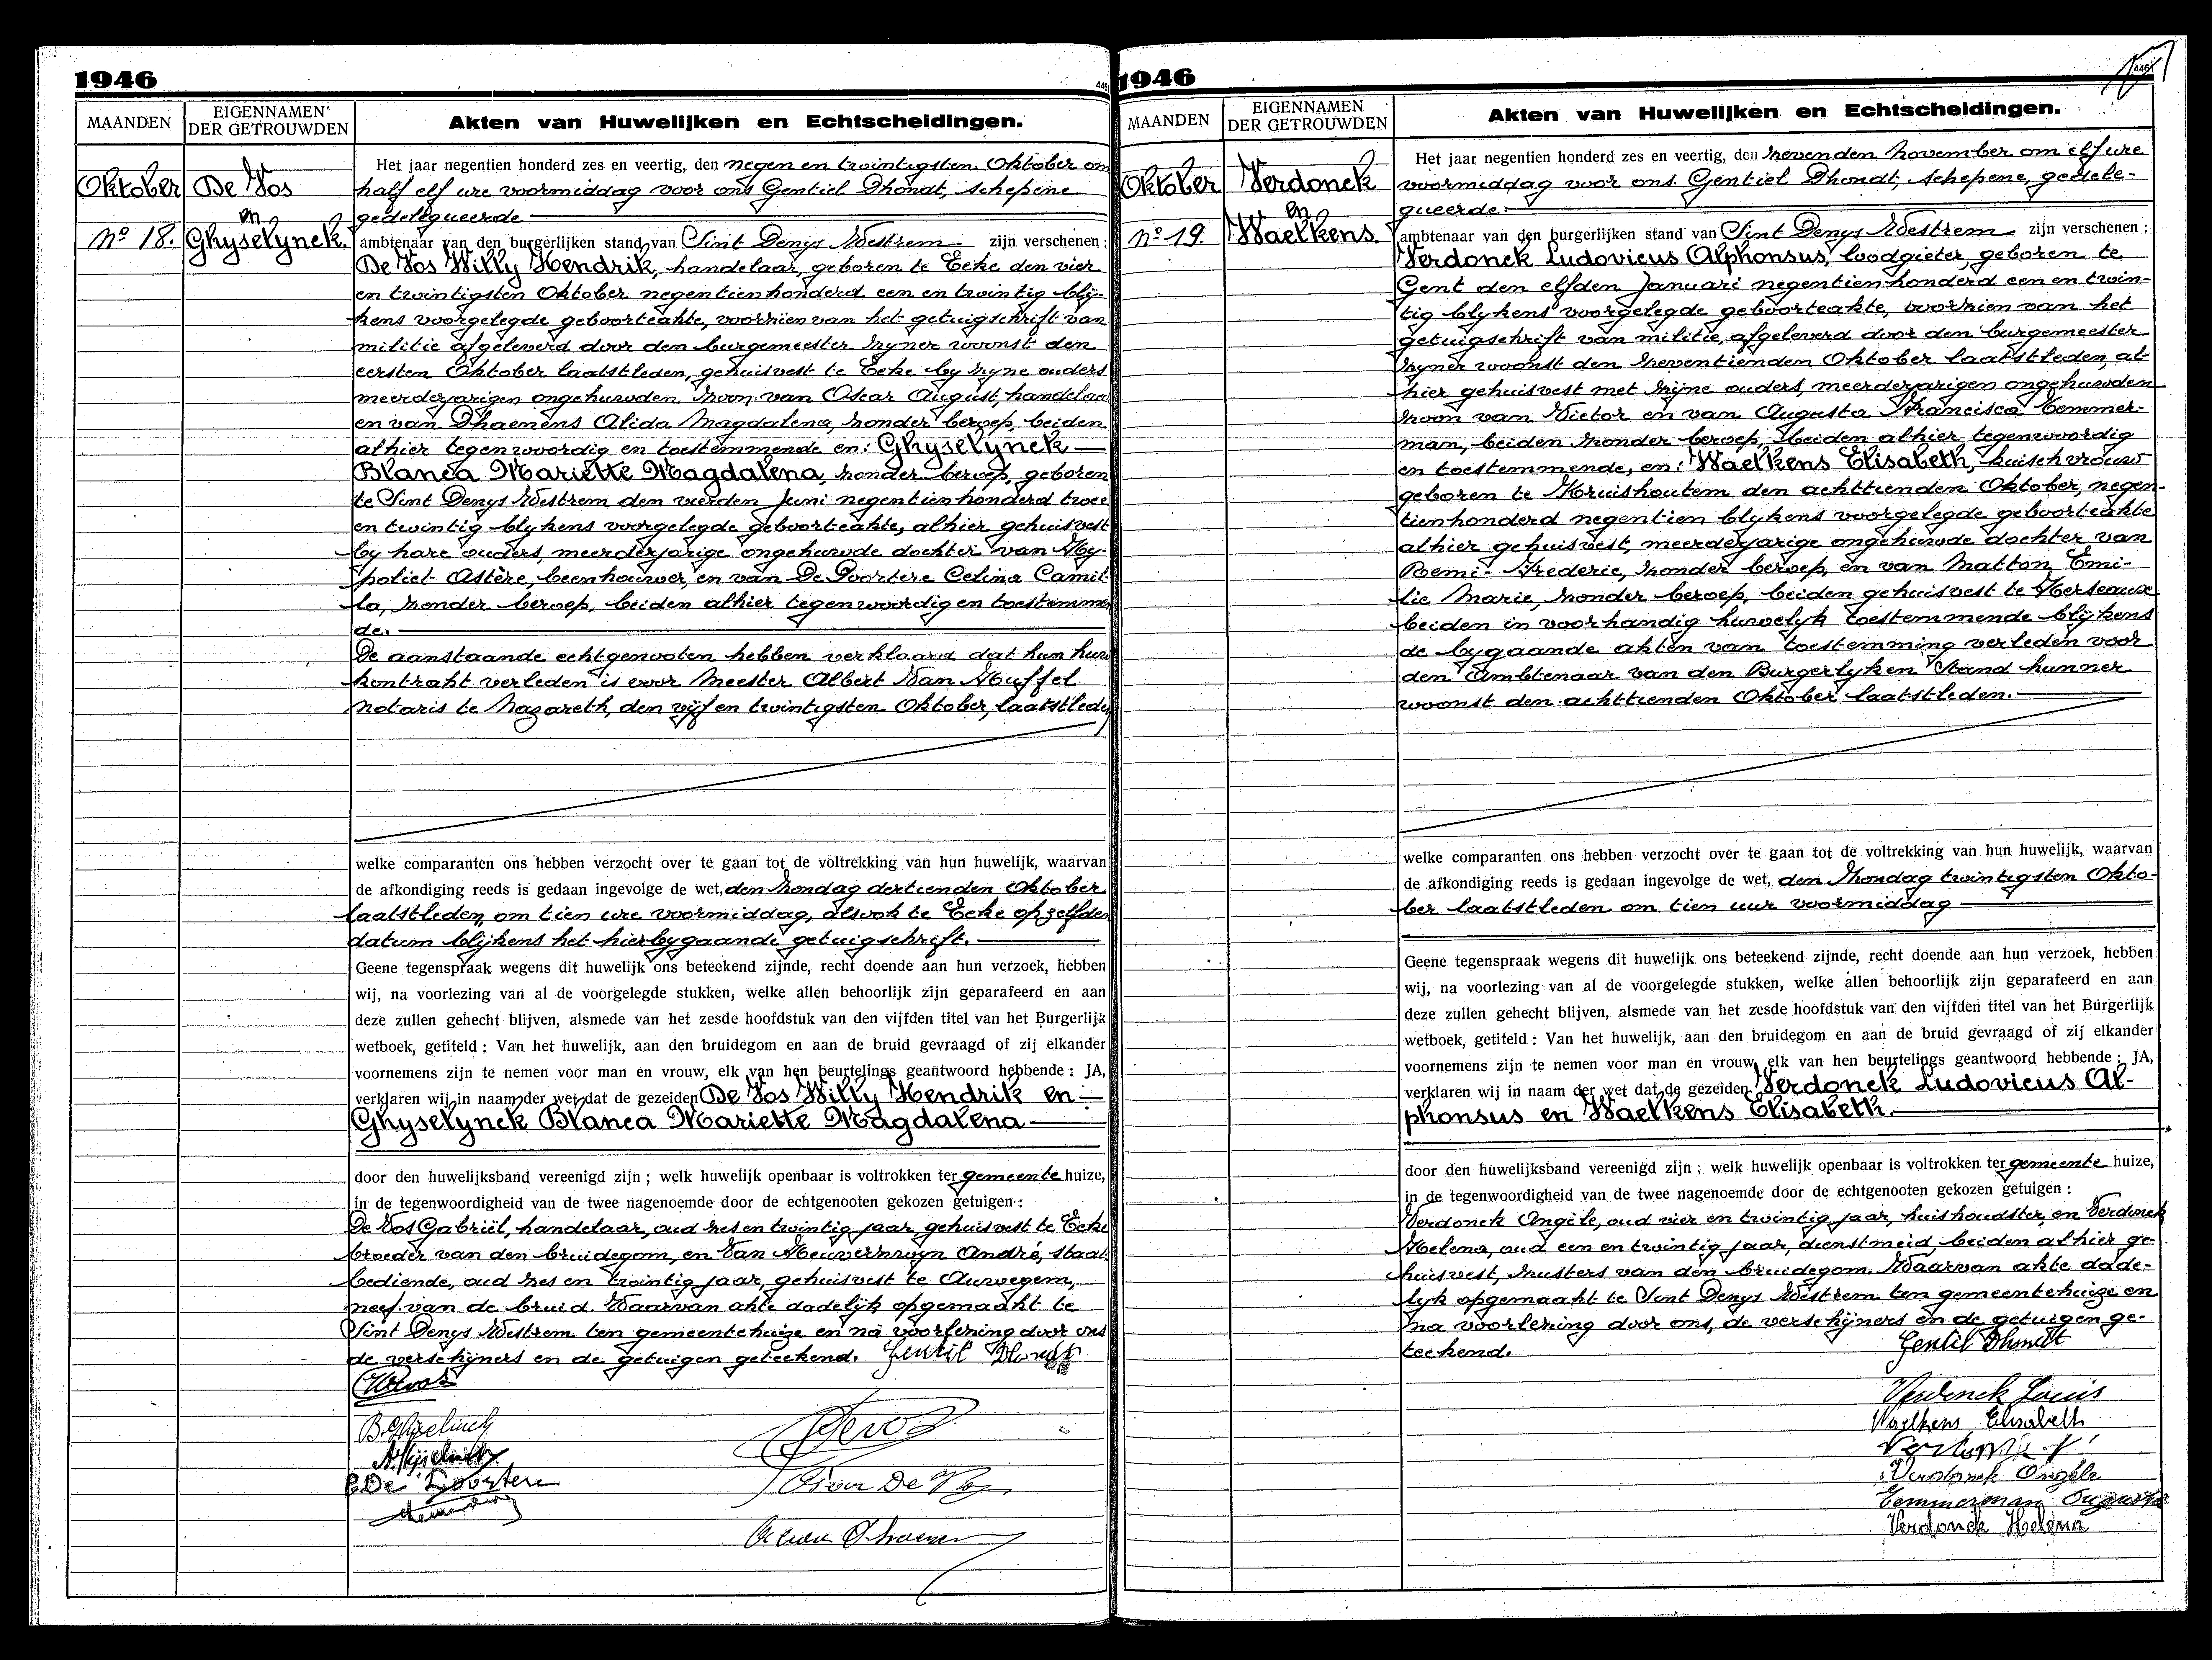 1946
MAANDEN
EIGENNAMEN
DER GETROUWDEN
Akten van Huwelijken en Echtscheidingen.
Oktober
De Vos
en
No 18.
Ghyselynck.
Het jaar negentien honderd zes en veertig, den negen en twintigsten Oktober om
half elf ure voormiddag voor ons Gentiel Dhondt, schepene
gedelegueerde
ambtenaar van den burgerlijken stand van Sint Denys Westrem zijn verschenen :
De Vos Willy Hendrik, handelaar, geboren te Eeke den vier
en twintigsten Oktober negentienhonderd een en twintig blij-
kens voorgelegde geboorteakte, voorzien van het getuigschrift van
militie afgeleverd door den burgemeester zyner woonst den
eersten Oktober laatstleden, gehuisvest te Eeke by zyne ouders
meerderjarigen ongehuwden zoon van Oscar August, handelaar
en van Dhaenens Alida Magdalena, zonder beroep, beiden
alhier tegenwoordig en toestemmende en: Ghyselynck
Blanca Mariette Magdalena, zonder beroep, geboren
te Sint Denys Westrem den vierden Juni negentienhonderd twee
en twintig blykens voorgelegde geboorteakte, alhier gehuisvest
by hare ouders, meerderjarige ongehuwde dochter van Hy-
poliet Astère, beenhouwer, en van De Poortere Celina Camil-
la, zonder beroep, beiden alhier tegenwoordig en toestemmen
de.
De aanstaande echtgenooten hebben verklaard dat hun huw
kontrakt verleden is voor Meester Albert Van Huffel
notaris te Nazareth, den vijf en twintigsten Oktober, laatstleden
welke comparanten ons hebben verzocht over te gaan tot de voltrekking van hun huwelijk, waarvan
de afkondiging reeds is gedaan ingevolge de wet, den Zondag dertienden Oktober
laatstleden, om tien ure voormiddag, alsook te Eeke op zelfden
datum blijkens het hierbygaande getuigschrift.
Geene tegenspraak wegens dit huwelijk ons beteekend zijnde, recht doende aan hun verzoek, hebben
wij, na voorlezing van al de voorgelegde stukken, welke allen behoorlijk zijn geparafeerd en aan
deze zullen gehecht blijven, alsmede van het zesde hoofdstuk van den vijfden titel van het Burgerlijk
wetboek, getiteld : Van het huwelijk, aan den bruidegom en aan de bruid gevraagd of zij elkander
voornemens zijn te nemen voor man en vrouw, elk van hen beurtelings geantwoord hebbende : JA,
verklaren wij in naam der wet dat de gezeiden De Vos Willy Hendrik en
Ghyselynck Blanca Mariette Magdalena
door den huwelijksband vereenigd zijn ; welk huwelijk openbaar is voltrokken ter gemeente huize,
in de tegenwoordigheid van de twee nagenoemde door de echtgenooten gekozen getuigen :
De Vos Gabriël, handelaar, oud zes en twintig jaar, gehuisvest te Eeke
broeder van den bruidegom, en Van Meuverzwyn André, staat
bediende, oud zes en twintig jaar, gehuisvest te Aurvegem,
neef van de bruid. Waarvan akte dadelijk opgemaakt te
Sint Denys Westrem ten gemeentehuize en na voorlezing door ons
de verschijners en de getuigen geteekend. Gentil Dhondt
B. Ghyselinck
Devos
C De Poortere
Oscar De Vos
1946
446
MAANDEN
EIGENNAMEN
DER GETROUWDEN
Akten van Huwelijken en Echtscheidingen.
Oktober
Verdonck
en
No 19.
Waelkens.
Het jaar negentien honderd zes en veertig, den zevenden November om elf ure
voormiddag voor ons Gentiel Dhondt, schepene, gedele-
gueerde.
ambtenaar van den burgerlijken stand van Sint Denys Westrem zijn verschenen :
Verdonck Ludovicus Alphonsus, loodgieter, geboren te
Gent den elfden Januari negentienhonderd een en twin-
tig blykens voorgelegde geboorteakte, voorzien van het
getuigschrift van militie, afgeleverd door den burgemeester
zyner woonst den zeventienden Oktober laatstleden, al-
hier gehuisvest met zijne ouders, meerderjarigen ongehuwden
zoon van Victor en van Augusta Francisca Temmer-
man, beiden zonder beroep, beiden alhier tegenwoordig
en toestemmende, en: Waelkens Elisabeth, kuischvrouw
geboren te Kruishoutem den achttienden Oktober, negen-
tienhonderd negentien blykens voorgelegde geboorteakte
alhier gehuisvest, meerderjarige ongehuwde dochter van
Remi- Frederic, zonder beroep, en van Matton, Emi-
lie Marie, zonder beroep, beiden gehuisvest te Herseaux
beiden in voorhandig huwelyk toestemmende blijkens
de bygaande akten van toestemming verleden voor
den Ambtenaar van den Burgerlyken Stand hunner
woonst den achttienden Oktober laatstleden.
welke comparanten ons hebben verzocht over te gaan tot de voltrekking van hun huwelijk, waarvan
de afkondiging reeds is gedaan ingevolge de wet, den Zondag twintigsten Okto-
ber laatstleden om tien uur voormiddag
Geene tegenspraak wegens dit huwelijk ons beteekend zijnde, recht doende aan hun verzoek, hebben
wij, na voorlezing van al de voorgelegde stukken, welke allen behoorlijk zijn geparafeerd en aan
deze zullen gehecht blijven, alsmede van het zesde hoofdstuk van den vijfden titel van het Burgerlijk
wetboek, getiteld : Van het huwelijk, aan den bruidegom en aan de bruid gevraagd of zij elkander
voornemens zijn te nemen voor man en vrouw, elk van hen beurtelings geantwoord hebbende : JA,
verklaren wij in naam der wet dat de gezeiden Verdonck Ludovicus Al-
phonsus en Waelkens Elisabeth.
door den huwelijksband vereenigd zijn ; welk huwelijk openbaar is voltrokken ter gemeente huize,
in de tegenwoordigheid van de twee nagenoemde door de echtgenooten gekozen getuigen :
Verdonck Angèle, oud vier en twintig jaar, huishoudster, en Verdonck
Helena, oud een en twintig jaar, dienstmeid, beiden alhier ge-
huisvest, zusters van den bruidegom. Waarvan akte dade-
lyk opgemaakt te Sint Denys Westrem ten gemeentehuize en
na voorlezing door ons, de verschijners en de getuigen ge-
teekend.
Gentil Dhondt
Verdonck Louis
Waelkens Elisabeth
Verdonck Angèle
Temmerman Augusta
Verdonck Helena